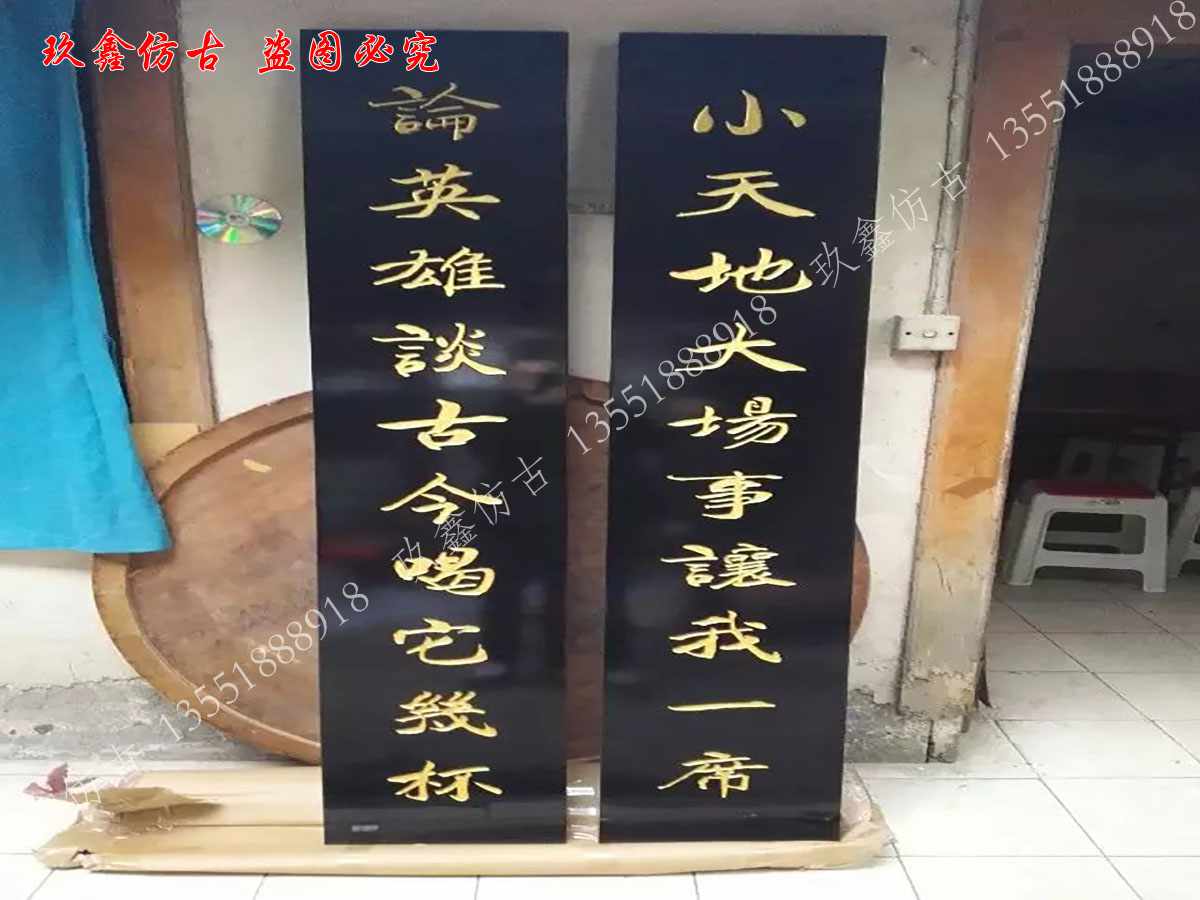 玖鑫仿古 盗图必究
小天地大場事讓我一席
論英雄談古今喝它幾杯
玖鑫仿古 13551888918
玖鑫仿古 13551888918
仿古 13551888918